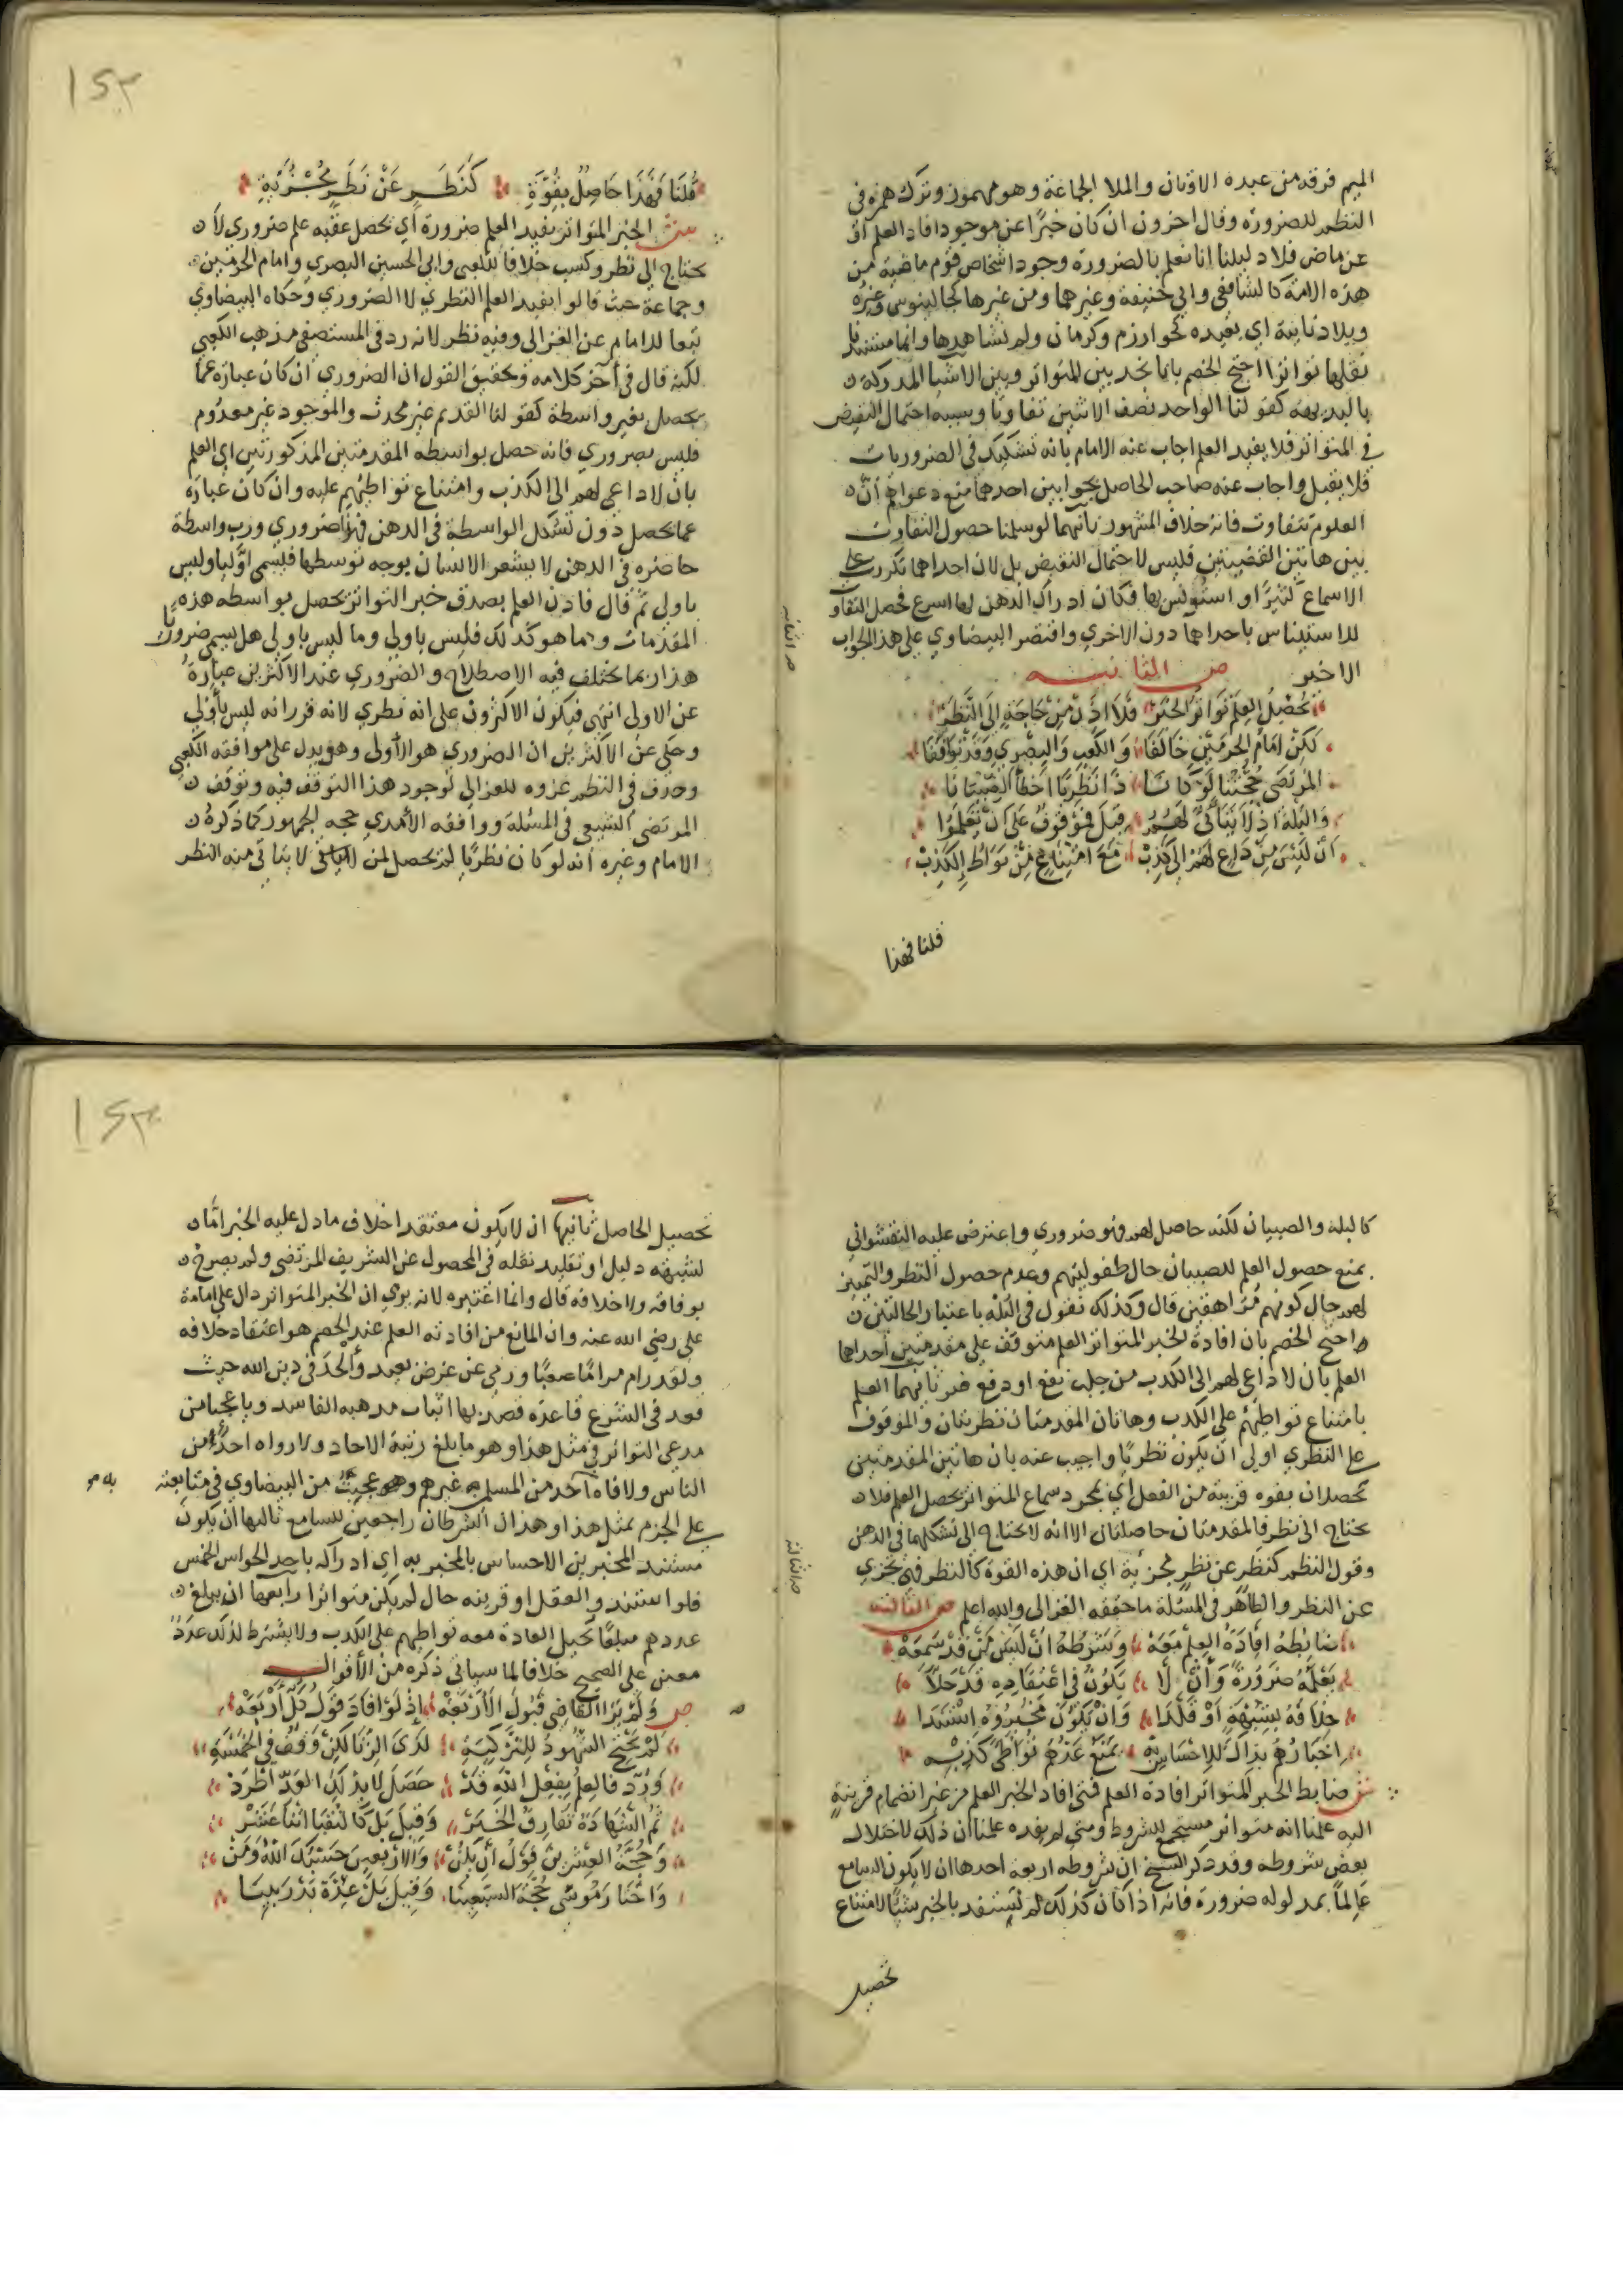 الميم فرقة من عبدة الاوثان والملا الجماعة وهو مهموز وترك همزه في
النظم للضرورة وقال اخرون ان كان خبرًا عن موجود افاد العلم او
عن ماض فلا دليلنا انا نعلم بالضرورة وجود اشخاص قوم ماضية من
هذه الامة كالشافعي وابي حنيفة وغيرهما ومن غيرها كجالينوس وغيره
وبلاد نايية اي بعيده نحو خوارزم وكرمان ولم نشاهدها وانما مستندنا
نقلها تواترا احتج الخصم بانا نجد بين المتواتر وبين الاشيا المدركة
بالبديهة كقولنا الواحد نصف الاثنين تفاوتا وسببه احتمال النقيض
في المتواتر فلا يفيد العلم اجاب عنه الامام بانه تشكيك في الضروريات
فلا يقبل واجاب عنه صاحب الحاصل بجوابين احدهما منع دعواهم ان
العلوم تتفاوت فانه خلاف المشهور ثانيهما لو سلمنا حصول التفاوت
بين هاتين القضيتين فليس لاحتمال النقيض بل لان احداهما تكررت على
الاسماع كثيرًا واستونس بها فكان ادراك الذهن لها اسرع فحصل التفاوت
للاستيناس باحداها دون الاخري واقتصر البيضاوي على هذا الجواب
الاخير ص الثانيه
تحصل العلم تواتر الخبر فلا اذن من حاجة الى النظر
لكن امام الحرمين خالفا والكعب والبصري وقد توافقا
المرتضى حجتنا لو كانا ذا نظريا اخطا الصبيانا
والبله اذ لا يتاتى لهم قبل فوقوف على ان تعلموا
ان ليس من داع لهم الى كذب مع امتناع من تواط للكذب
قلنا فهذا
قلنا فهذا حاصل بقوة كنظر عن نظر مجزية
ش الخبر المتواتر يفيد العلم ضرورة اي تحصل عقبه علم ضروري لا
يحتاج الي نظر وكسب خلافا للكعبي وابي الحسين البصري وامام الحرمين
وجماعة حيث قالوا يفيد العلم النظري لا الضروري وحكاه البيضاوي
تبعا للامام عن الغزالي وفيه نظر لانه رد في المستصفى مذهب الكعبي
لكنه قال في آخر كلامه وتحقيق القول ان الضروري ان كان عبارة عما
يحصل بغير واسطة كقولنا القديم غير محدث والموجود غير معدوم
فليس بضروري فانه حصل بواسطه المقدمتين المذكورتين اي العلم
بان لا داعي لهم الى الكذب وامتناع تواطيهم عليه وان كان عبارة
عما يحصل دون تشكل الواسطة في الذهن فهذا ضروري ورب واسطة
حاضره في الذهن لا يشعر الانسان بوجه توسطها فيسمى اوليا وليس
باولي ثم قال فاذن العلم بصدق خبر التواتر يحصل بواسطه هذه
المقدمات وما هو كذلك فليس باولي وما ليس باولي هل يسمى ضروريا
هذا ربما يختلف فيه الاصطلاح والضروري عند الاكثرين عبارة
عن الاولى انتهى فيكون الاكثرون على انه نظري لانه قرر انه ليس باولي
وحكى عن الاكثرين ان الضروري هو الاولى وهو يدل على موافقه الكعبي
وحذف في النظم عزوه للغزالي لوجود هذا التوقف فيه وتوقف
المرتضى الشيعي في المسئلة ووافقه الآمدي حجه الجمهور كما ذكره
الامام وغيره انه لو كان نظريا لم يحصل لمن لا يتاتى منه النظر
كالبله والصبيان لكنه حاصل لهم فهو ضروري واعترض عليه النقشواني
بمنع حصول العلم للصبيان حال طفوليتهم وعدم حصول النظر والتمييز
لهم حال كونهم مراهقين قال وكذلك نقول في البله باعتبار الحالتين
واحتج الخصم بان افادة الخبر المتواتر العلم متوقف على مقدمتين احداهما
العلم بان لا داعي لهم الى الكذب من جلب نفع او دفع ضر ثانيهما العلم
بامتناع تواطيهم على الكذب وهاتان المقدمتان نظريتان والموقوف
على النظري اولى ان يكون نظريا واجيب عنه بان هاتين المقدمتين
تحصلان بقوه قريبة من الفعل اي بمجرد سماع المتواتر يحصل العلم فلا
يحتاج الى نظر فالمقدمتان حاصلتان الا انه لا يحتاج الى تشكلهما في الذهن
وقول النظم كنظر عن نظر مجزية اي ان هذه القوة كالنظر فهي تجزي
عن النظر والظاهر في المسئلة ما حققه الغزالي والله اعلم ص الثالثه
ضابطه افادة العلم معه وشرطه ان ليس من قد سمعه
يعلمه ضرورة وان لا يكون في اعتقاده قد حلا
خلافه بشبهة او قلدا وان يكون مخبروه استندا
اخبارهم بذاك للاحساس به يمنع عدهم تواطي كذبه
ش ضابط الخبر المتواتر افادة العلم فمتى افاد الخبر العلم من غير انضمام قرينة
اليه علمنا انه متواتر مستجمع للشروط ومتى لم يفده علمنا ان ذلك لاختلال
بعض شروطه وقد ذكر الشيخ ان شروطه اربعة احدها ان لا يكون السامع
عالما بمدلوله ضرورة فانه اذا كان كذلك لم يستفد بالخبر شيئا لامتناع
تحصيل
تحصيل الحاصل ثانيها ان لا يكون معتقدا خلاف ما دل عليه الخبر اما
لشبهة دليل او تقليد نقله في المحصول عن الشريف المرتضى ولم يصرح
بوفاقه ولا خلافه قال وانما اعتبره لانه يرى ان الخبر المتواتر دال على امامة
علي رضي الله عنه وان المانع من افادته العلم عند الخصم هو اعتقاد خلافه
ولقد رام مراما صعبا ورمى عن غرض بعيد والحد في دين الله حيث
قعد في الشرع قاعدة قصد بها اثبات مذهبه الفاسد ويا عجبا من
مدعي التواتر في مثل هذا وهو ما بلغ رتبة الاحاد ولا رواه احد من
الناس ولا فاه احد من المسلمين غيرهم وهو عجيب من البيضاوي في متابعته
على الجزم بمثل هذا وهذان الشرطان راجعين للسامع ثالثها ان يكون
مستند المخبرين الاحساس بالمخبر به اي ادراكه باحد الحواس الخمس
فلو استند والعقل او قرينه حال لم يكن متواترا رابعها ان يبلغ
عددهم مبلغا تحيل العادة معه تواطيهم على الكذب ولا يشترط لذلك عدد
معين على الصحيح خلافا لما سياتي ذكره من الاقوال
ص ولم ير القاضي قبول الاربعه اذ لو افاد قول كل اربعه
لم يحتج الشهود للتزكية لدى الزنا لكن وقف في الخمسة
ورد فالعلم بفعل الله قد حصل لا بذلك العد اطرد
ثم الشهادة تفارق الخبر وقيل بل كالنقبا اثنا عشر
وحجة العشرين قول ان يكن والاربعين حسبك الله ومن
واختار موسى حجة السبعينا وقيل بل عدة بدر بينا